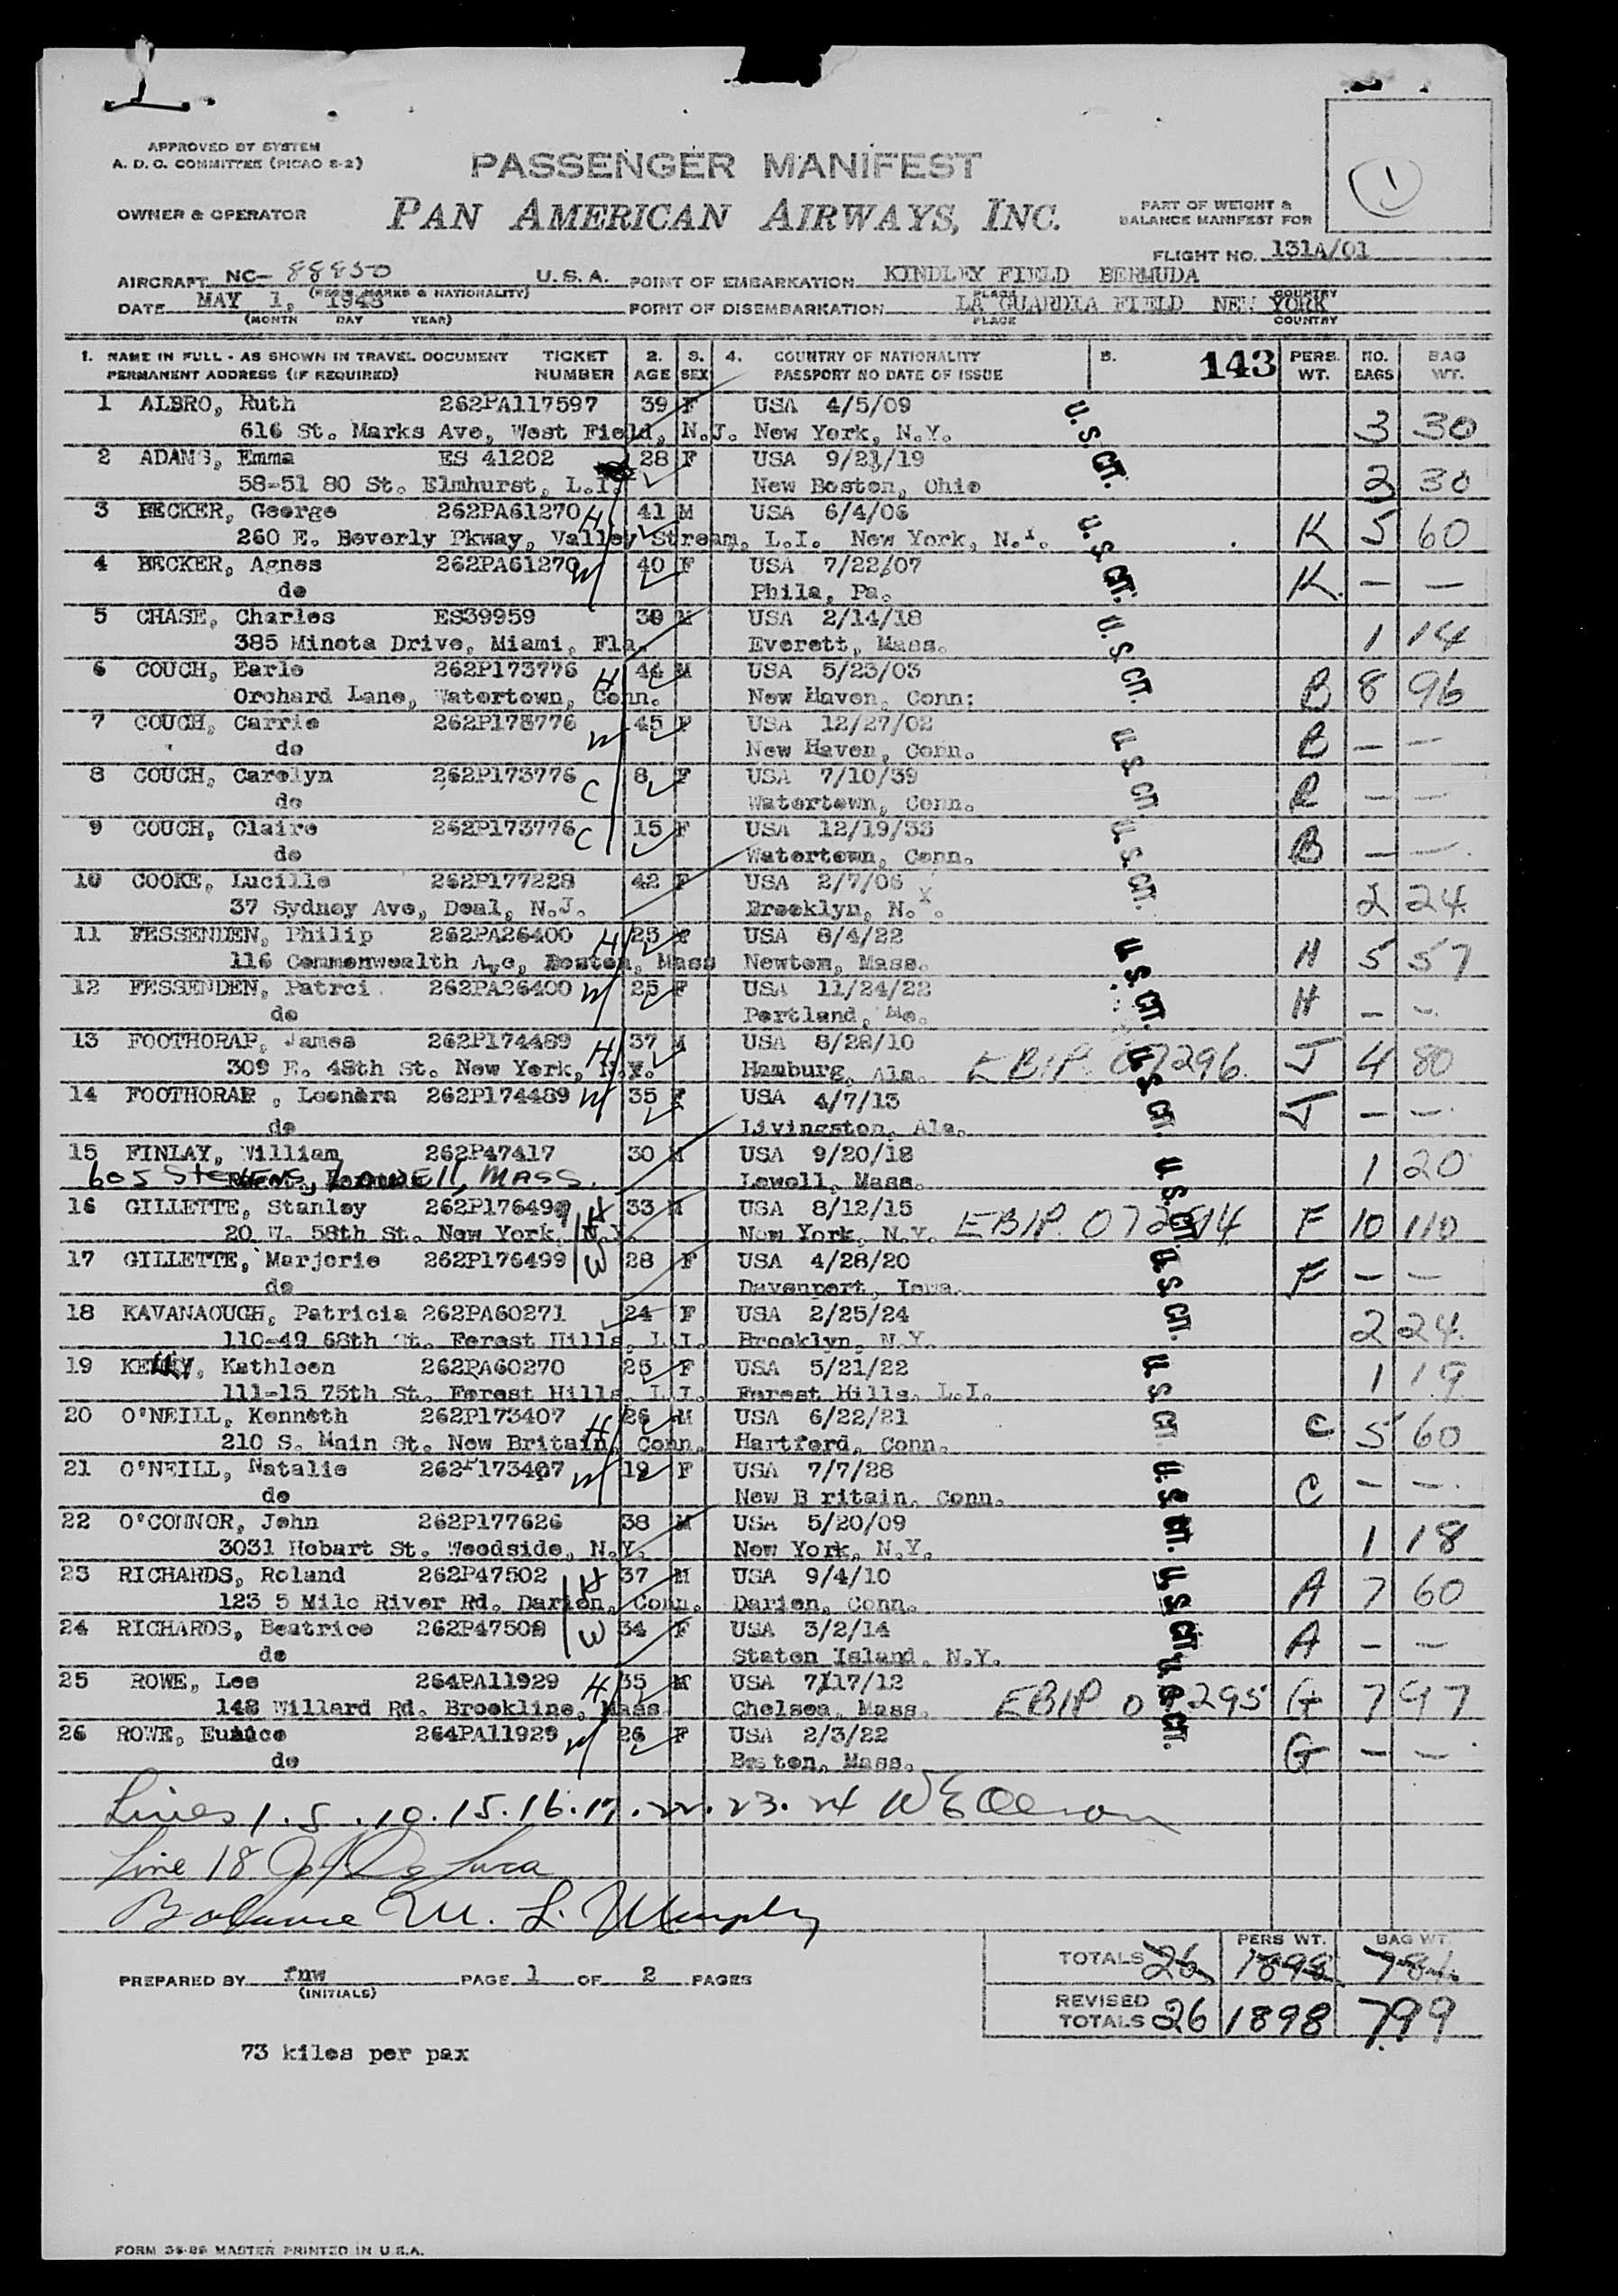 1
APPROVED BY SYSTEM
A. D. C. COMMITTEE (PICAO S-2)
PASSENGER MANIFEST
1
OWNER & OPERATOR
PAN AMERICAN AIRWAYS, INC.
PART OF WEIGHT &
BALANCE MANIFEST FOR
FLIGHT NO. 131A/01
AIRCRAFT NC- 88850 U.S.A. POINT OF EMBARKATION KINDLEY FIELD BERMUDA
(REGIS. MARKS & NATIONALITY) PLACE COUNTRY
DATE MAY 1, 1948 POINT OF DISEMBARKATION LA GUARDIA FIELD NEW YORK
(MONTH DAY YEAR) PLACE COUNTRY
1. NAME IN FULL - AS SHOWN IN TRAVEL DOCUMENT TICKET 2. 3. 4. COUNTRY OF NATIONALITY 5. 143 PERS. NO. BAG
PERMANENT ADDRESS (IF REQUIRED) NUMBER AGE SEX PASSPORT NO DATE OF ISSUE WT. BAGS WT.
1 ALBRO, Ruth 262PA117597 39 F USA 4/5/09 U.S. CIT.
616 St. Marks Ave, West Field, N.J. New York, N.Y. 3 30
2 ADAMS, Emma ES 41202 28 F USA 9/21/19
58-51 80 St. Elmhurst, L.I. New Boston, Ohio 2 30
3 BECKER, George 262PA61270 H 41 M USA 6/4/06 U.S. CIT.
260 E. Beverly Pkway, Valley Stream, L.I. New York, N.Y. K 5 60
4 BECKER, Agnes 262PA61270 W 40 F USA 7/22/07
do Phila, Pa. K — —
5 CHASE, Charles ES39959 30 M USA 2/14/18 U.S. CIT.
385 Minota Drive, Miami, Fla. Everett, Mass. 1 14
6 COUCH, Earle 262P173776 H 44 M USA 5/23/03
Orchard Lane, Watertown, Conn. New Haven, Conn: B 8 96
7 COUCH, Carrie 262P173776 W 45 F USA 12/27/02 U.S. CIT.
do New Haven, Conn. B — —
8 COUCH, Carolyn 262P173776 C 8 F USA 7/10/39
do Watertown, Conn. B — —
9 COUCH, Claire 262P173776 C 15 F USA 12/19/33 U.S. CIT.
do Watertown, Conn. B — —
10 COOKE, Lucille 262P177228 42 F USA 2/7/06
37 Sydney Ave, Deal, N.J. Brooklyn, N.Y. 2 24
11 FESSENDEN, Philip 262PA26400 H 25 USA 8/4/22 U.S. CIT.
116 Commonwealth Ave, Boston, Mass Newton, Mass. H 5 57
12 FESSENDEN, Patrci 262PA26400 W 25 F USA 11/24/22
do Portland, Me. H — —
13 FOOTHORAP, James 262P174489 H 37 M USA 8/28/10 U.S. CIT.
309 E. 48th St. New York, N.Y. Hamburg, Ala. EBIP. 07296 J 4 80
14 FOOTHORAP , Leonora 262P174489 W 35 F USA 4/7/13
do Livingston, Ala. J — —
15 FINLAY, William 262P47417 30 M USA 9/20/18 U.S. CIT.
605 STEVENS, LOWELL, MASS. Lowell, Mass. 1 20
16 GILLETTE, Stanley 262P176499 H 33 M USA 8/12/15
20 W. 58th St. New York, N.Y. New York, N.Y. EBIP. F 10 110
17 GILLETTE, Marjorie 262P176499 W 28 F USA 4/28/20 U.S. CIT.
do Davenport, Iowa. F — —
18 KAVANAOUGH, Patricia 262PA60271 24 F USA 2/25/24
110-49 68th St. Forest Hills, L.I. Brooklyn, N.Y. 2 24
19 KELLY, Kathleen 262PA60270 25 F USA 5/21/22 U.S. CIT.
111-15 75th St. Forest Hills, L.I. Forest Hills, L.I. 1 19
20 O'NEILL, Kenneth 262P173407 H 26 M USA 6/22/21
210 S. Main St. New Britain, Conn. Hartford, Conn. C 5 60
21 O'NEILL, Natalie 262P173407 W 19 F USA 7/7/28 U.S. CIT.
do New B ritain, Conn. C — —
22 O'CONNOR, John 262P177626 38 M USA 5/20/09
3031 Hobart St. Woodside, N.Y. New York, N.Y. 1 18
23 RICHARDS, Roland 262P47502 H 37 M USA 9/4/10 U.S. CIT.
123 5 Mile River Rd. Darien, Conn. Darien, Conn. A 7 60
24 RICHARDS, Beatrice 262P47502 W 34 F USA 3/2/14
do Staten Island, N.Y. A — —
25 ROWE, Lee 264PA11929 H 35 M USA 7/17/12 U.S. CIT.
148 Willard Rd. Brookline, Mass Chelsea, Mass. EBIP G 7 97
26 ROWE, Eunice 264PA11929 W 26 F USA 2/3/22
do Boston, Mass. G — —
Lines 1. 5. 10. 15. 16. 17. 22. 23. 24
Line 18
Balance M. L. Murphy
TOTALS 26 PERS WT. 1898 BAG WT. 784
PREPARED BY fnw PAGE 1 OF 2 PAGES
(INITIALS)
REVISED TOTALS 26 1898 799
73 kilos per pax
FORM 36-86 MASTER PRINTED IN U.S.A.